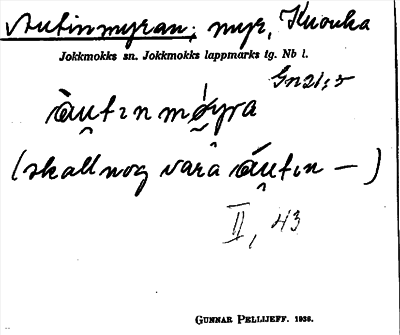 Autinmyran, myr, Knouka
Jokkmokks sn. Jokkmokks lappmarks tg. Nb l.
Gn21;5
(skall nog vara áu̯tın —)
II, 43
Gunnar Pellijeff. 1938.